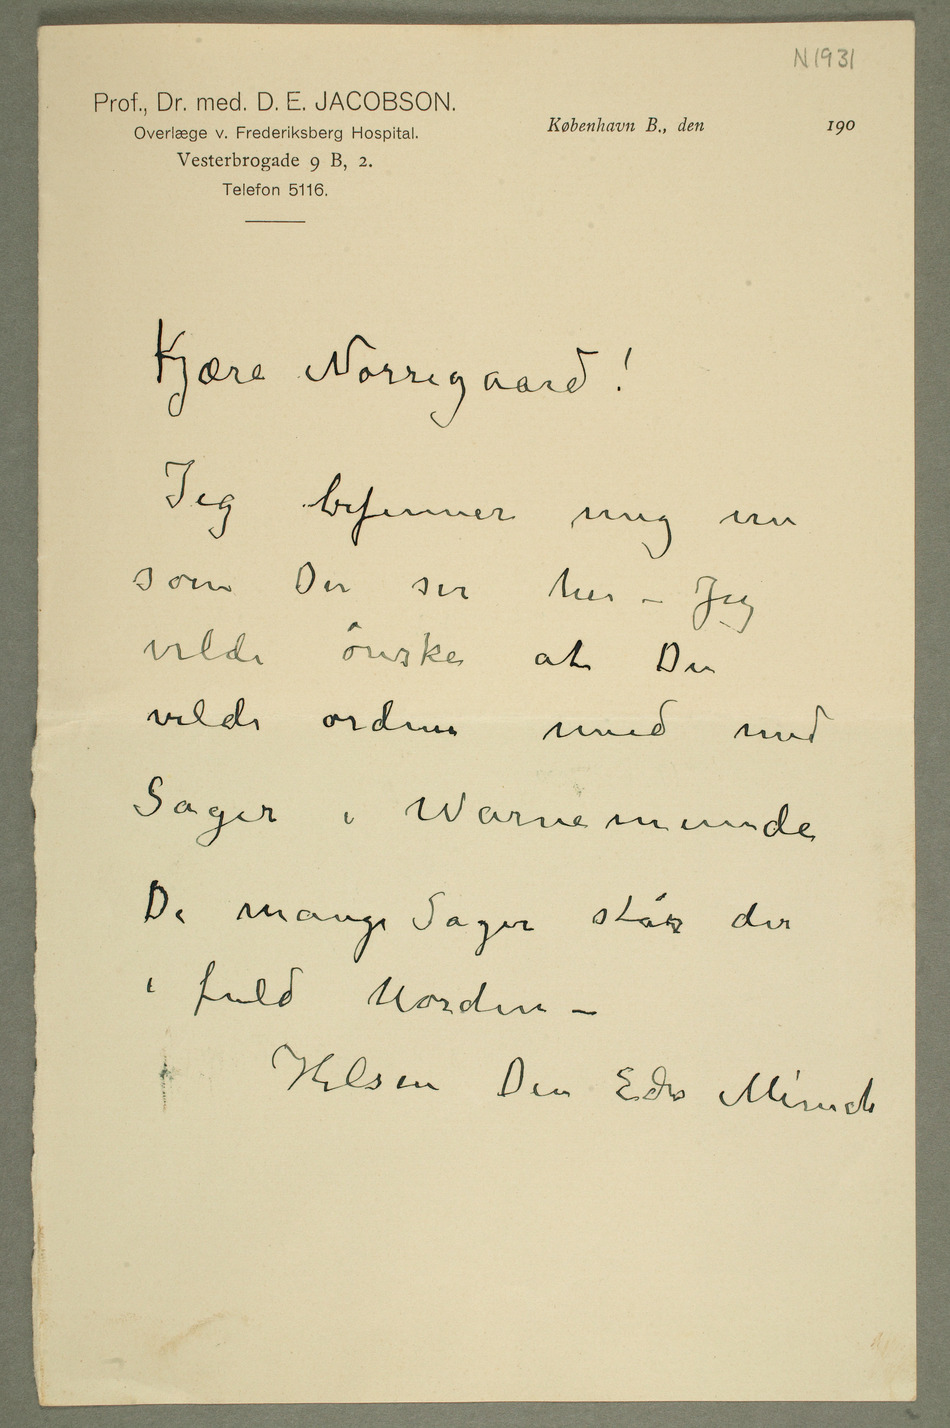 N 1931
Prof., Dr. med. D. E. JACOBSON.
Overlæge v. Frederiksberg Hospital.
Vesterbrogade 9 B, 2.
Telefon 5116.
København B., den 190
Kjære Nørregaard!
Jeg befinner mig nu
som Du ser her – Jeg
vilde ønske at Du
vilde ordne med med
Sager i Warnemunde
De mange Sager står der
i fuld Uorden –
Hilsen Din Edv Munch